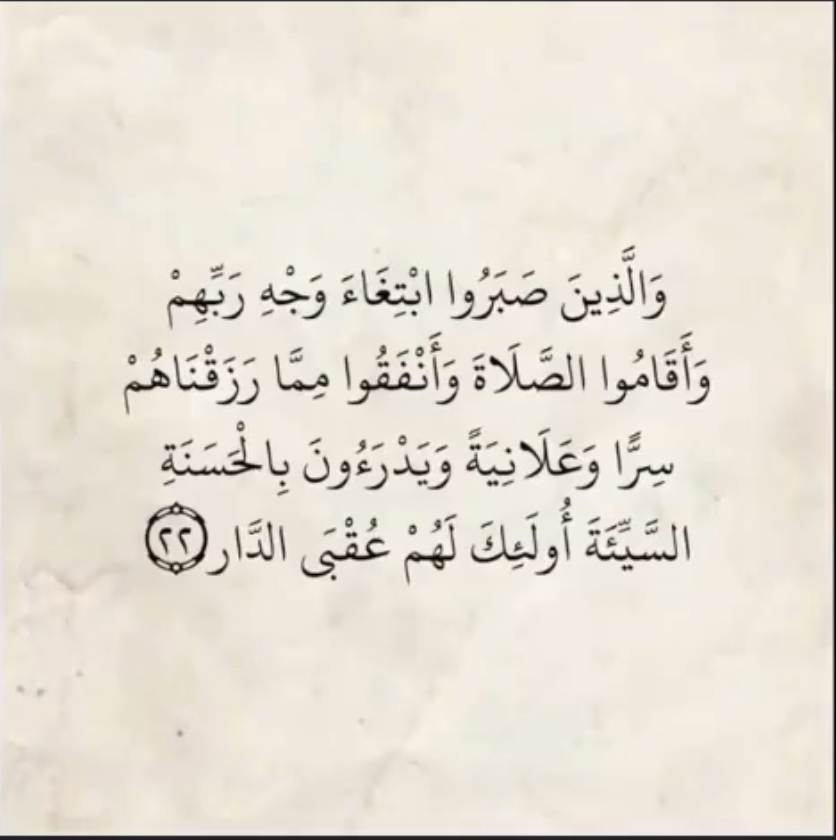 وَالَّذِينَ صَبَرُوا ابْتِغَاءَ وَجْهِ رَبِّهِمْ
وَأَقَامُوا الصَّلَاةَ وَأَنْفَقُوا مِمَّا رَزَقْنَاهُمْ
سِرًّا وَعَلَانِيَةً وَيَدْرَءُونَ بِالْحَسَنَةِ
السَّيِّئَةَ أُولَئِكَ لَهُمْ عُقْبَى الدَّار ٢٢